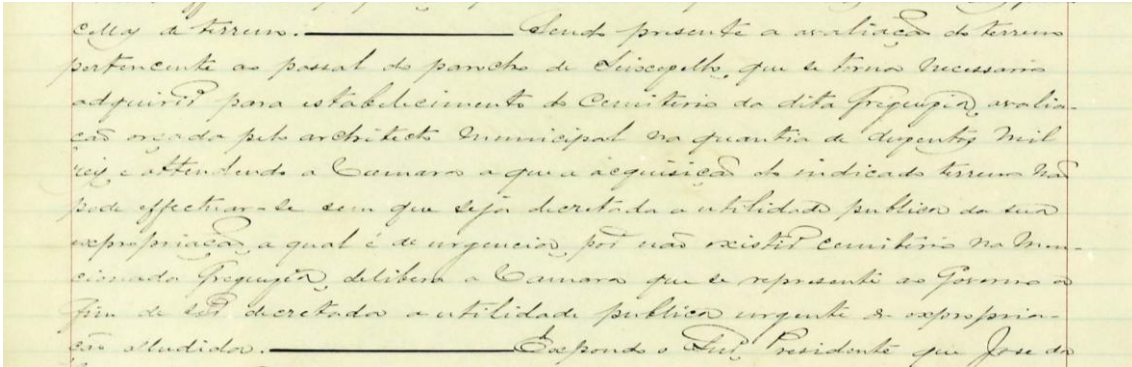 cellas de terreno. Sendo presente a avaliação do terreno
pertencente ao passal do parocho de que se torna necessario
adquirir para estabelecimento do Cemiterio da dita freguezia, avalia-
ção orçada pelo architecto Municipal na quantia de duzentos mil
reis, e attendendo a Camara a que a acquisição do indicado terreno não
pode effectuar-se sem que seja decretada a utilidade publica da sua
expropriação, a qual é de urgencia, por não existir cemiterio na men-
cionada freguezia, delibera a Camara que se represente ao Governo a
fim de ser decretada a utilidade publica urgente da expropria-
ção alludida. Expondo o Snr. Presidente que José da